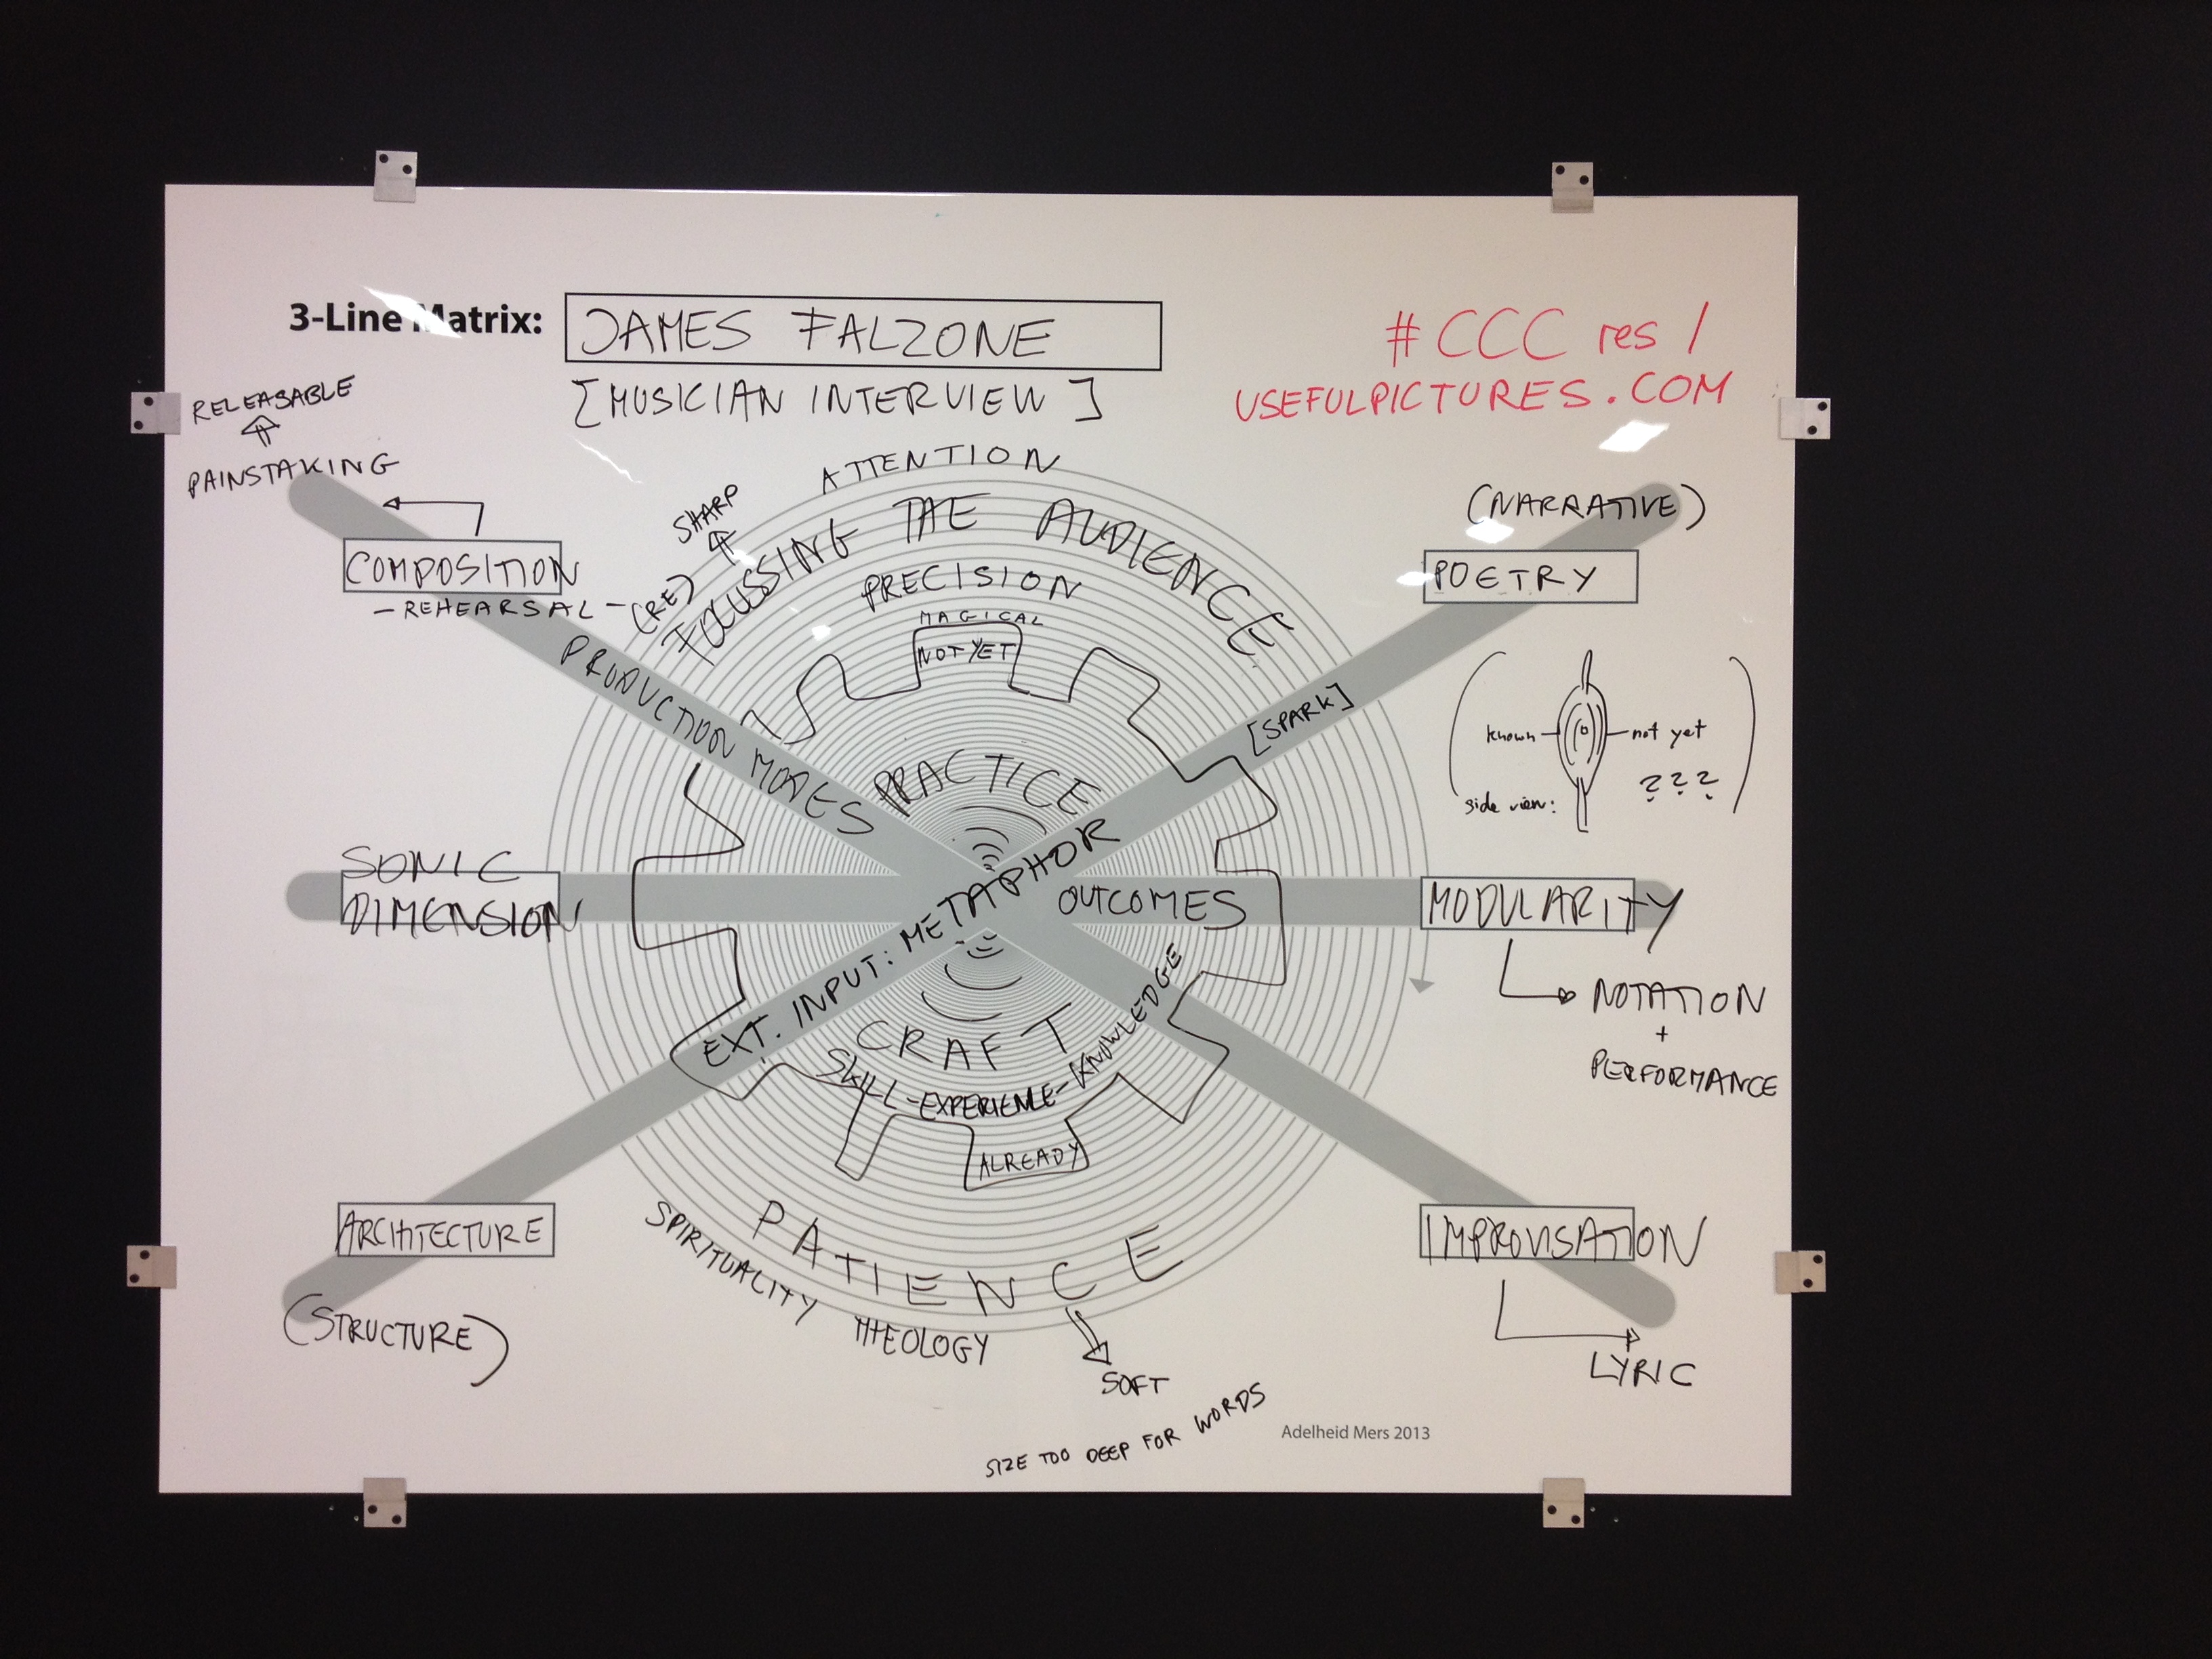 3-Line Matrix: JAMES FALZONE
[MUSICIAN INTERVIEW]
#CCC res /
USEFULPICTURES.COM
RELEASABLE
PAINSTAKING
COMPOSITION
- REHEARSAL -
ATTENTION
SHARP
(RE) FOCUSSING THE AUDIENCE
PRECISION
MAGICAL
NOT YET
PRODUCTION MODES
PRACTICE
(NARRATIVE)
POETRY
[SPARK]
known
not yet
???
side view:
SONIC
DIMENSION
EXT. INPUT: METAPHOR
OUTCOMES
MODULARITY
NOTATION
+
PERFORMANCE
CRAFT
SKILL-EXPERIENCE-KNOWLEDGE
ALREADY
ARCHITECTURE
(STRUCTURE)
PATIENCE
SPIRITUALITY THEOLOGY
SOFT
SIZE TOO DEEP FOR WORDS
IMPROVISATION
LYRIC
Adelheid Mers 2013